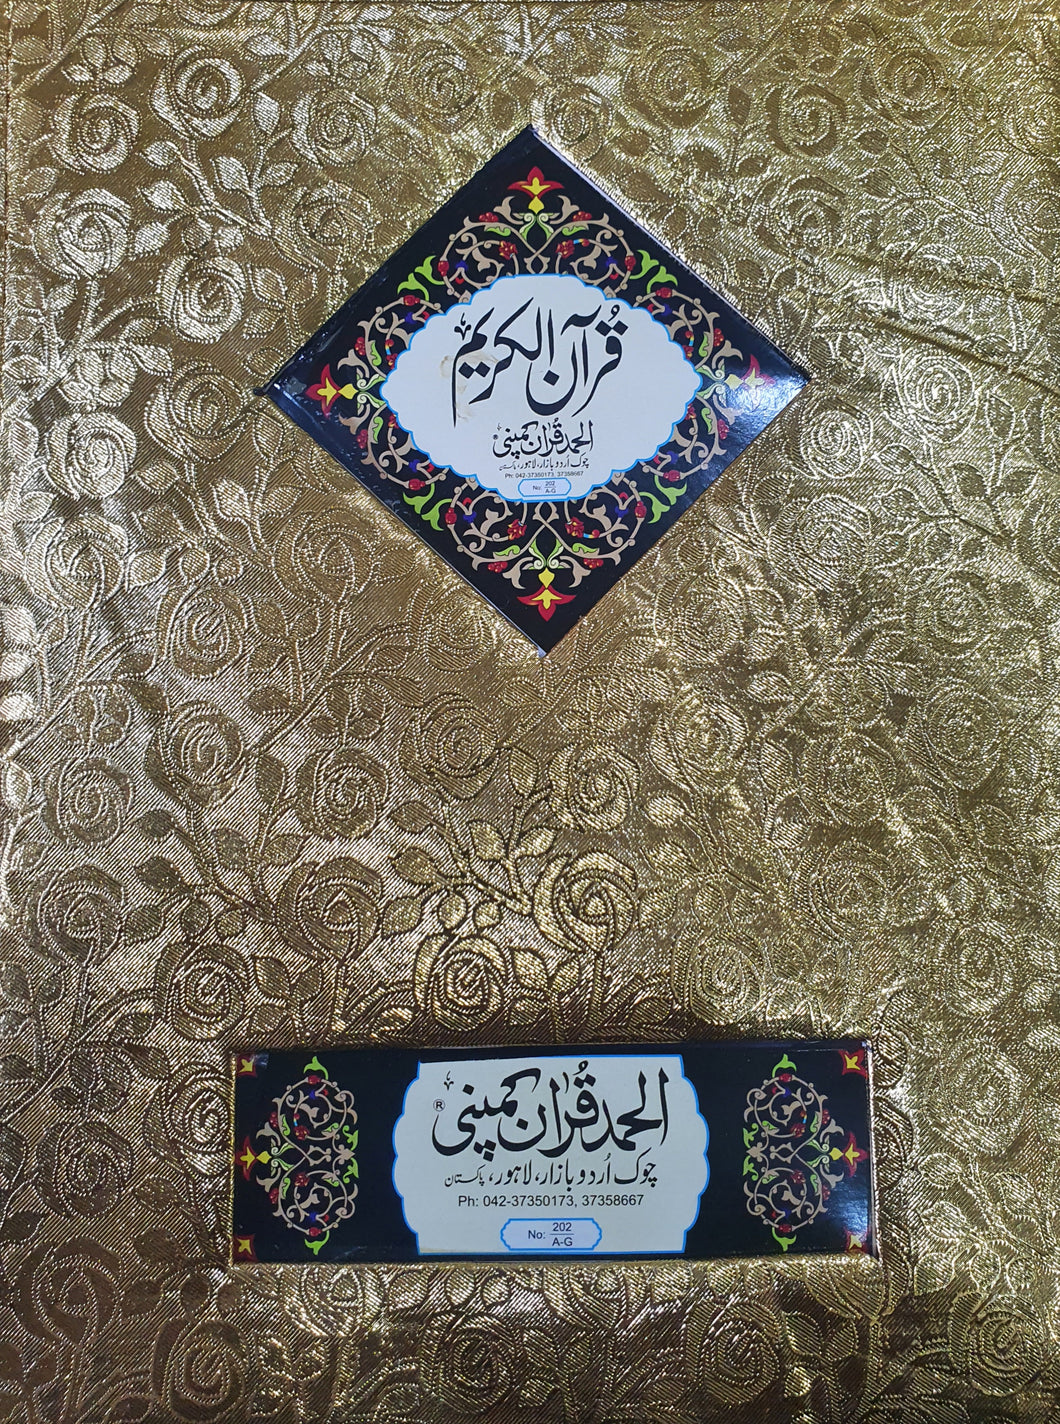 قُرآن الکریم
الحمد قُرآن کمپنی
چوک اُردو بازار، لاہور، پاکستان
Ph: 042-37350173, 37358667
No: 202/A-G
الحمد قُرآن کمپنی ®
چوک اُردو بازار، لاہور، پاکستان
Ph: 042-37350173, 37358667
No: 202/A-G